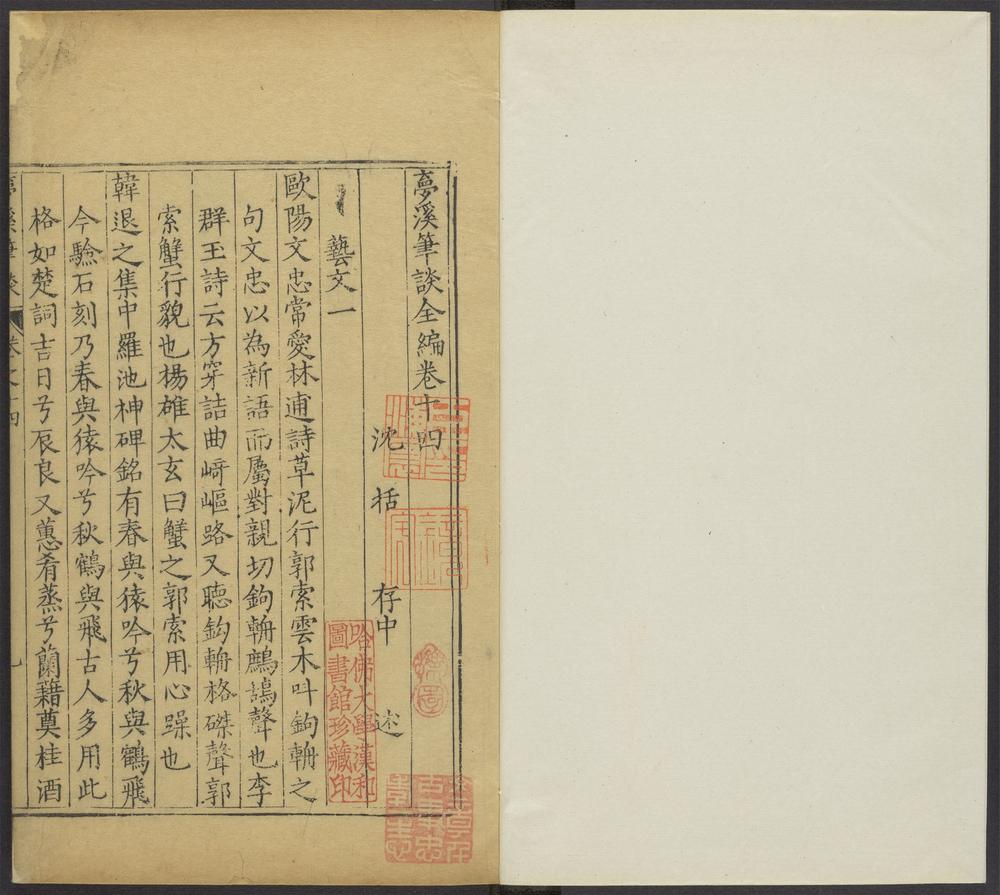 夢溪筆談全編卷十四
沈括存中述
藝文一
歐陽文忠常愛林逋詩草泥行郭索雲木叫鉤輈之
句文忠以為新語而屬對親切鉤輈鷓鴣聲也李
群玉詩云方穿詰曲崎嶇路又聽鉤輈格磔聲郭
索蟹行貌也楊雄太玄曰蟹之郭索用心躁也
韓退之集中羅池神碑銘有春與猿吟兮秋與鶴飛
今驗石刻乃春與猿吟兮秋鶴與飛古人多用此
格如楚詞吉日兮辰良又蕙肴蒸兮蘭籍奠桂酒
哈佛大學漢和
圖書館珍藏印